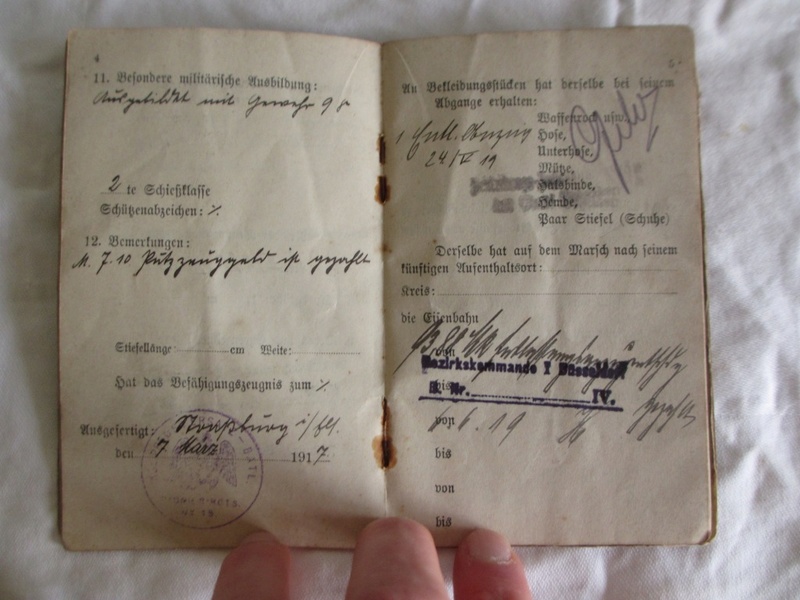 4
11. Besondere militärische Ausbildung:
Ausgebildet mit Gewehr 98
2 te Schießklasse
Schützenabzeichen: ⁒
12. Bemerkungen:
M. 7.10 Putzzeuggeld ist gezahlt
Stiefellänge cm Weite:
Hat das Befähigungszeugnis zum ⁒
Ausgefertigt: Straßburg i/Els.
den 7 März 1917
5
An Bekleidungsstücken hat derselbe bei seinem
Abgange erhalten:
Waffenrock usw.
1 Entl. Anzug Hose,
24/IV 19 Unterhose,
Mütze,
Halsbinde,
Hemde,
Paar Stiefel (Schuhe)
Derselbe hat auf dem Marsch nach seinem
künftigen Aufenthaltsort:
Kreis:
die Eisenbahn
Bezirkskommando I Düsseldorf
bis
J. Nr. IV.
von 6.6.19 gezahlt
bis
von
bis